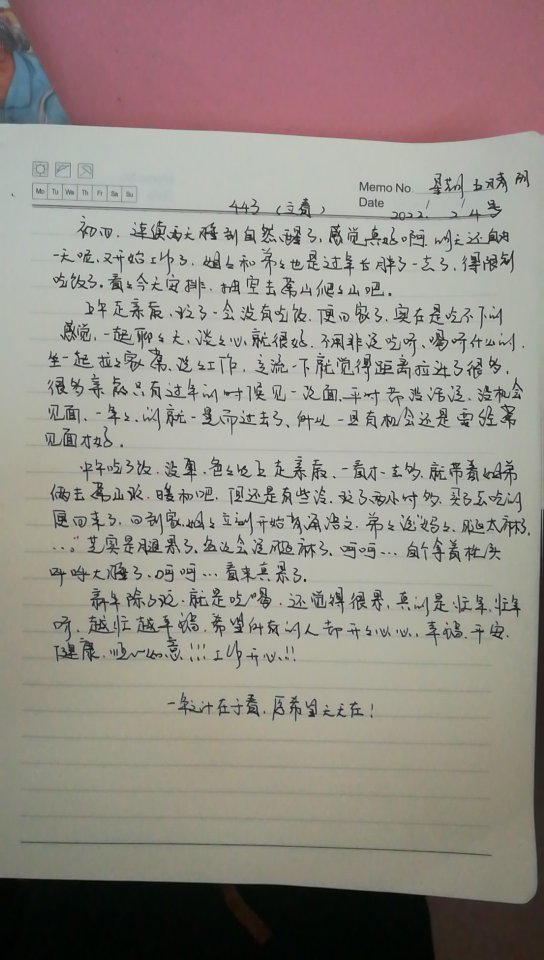 Mo Tu We Th Fr Sa Su
Memo No 星期五 晴 阴
Date 2022 2 4号
443 (立春)
初四，连续两天睡到自然醒了，感觉真好啊，明天还自由
一天呢，又开始工作了，姐姐和弟弟也是过年长胖了一大了，得限制
吃饭了，看看今天安排，抽空去爬爬山吧。
上午走亲戚，玩了一会没有吃饭，便回家了，实在是吃不下的
感觉，一起聊聊天，谈谈心就很好，不用非得吃呀，喝呀什么的，
坐一起拉拉家常，谈谈工作，交流一下就觉得距离拉近了很多，
很多亲戚只有过年的时候见一次面，平时都没活动，没机会
见面，一年年的就一晃而过去了，所以一旦有机会还是要经常
见面才好。
中午吃了饭，没事，爸爸晚上走亲戚，一看才一点多，就带着姐弟
俩去山玩，暖和吧，但还是有些冷，玩了两小时多，买了点吃的
便回来了，回到家，姐姐立刻开始，弟弟说妈妈，腿太麻了，
…。”其实是腿累了，他说会说腿麻了，呵呵…
呼呼大睡了，呵呵…看来真累了。
新年除了玩，就是吃喝，还觉得很累，真的是忙年，忙年
呀，越忙越幸福，希望所有的人都开开心心，幸福，平安，
健康，顺心如意！！！工作开心！！
一年之计在于春，愿希望天天在！